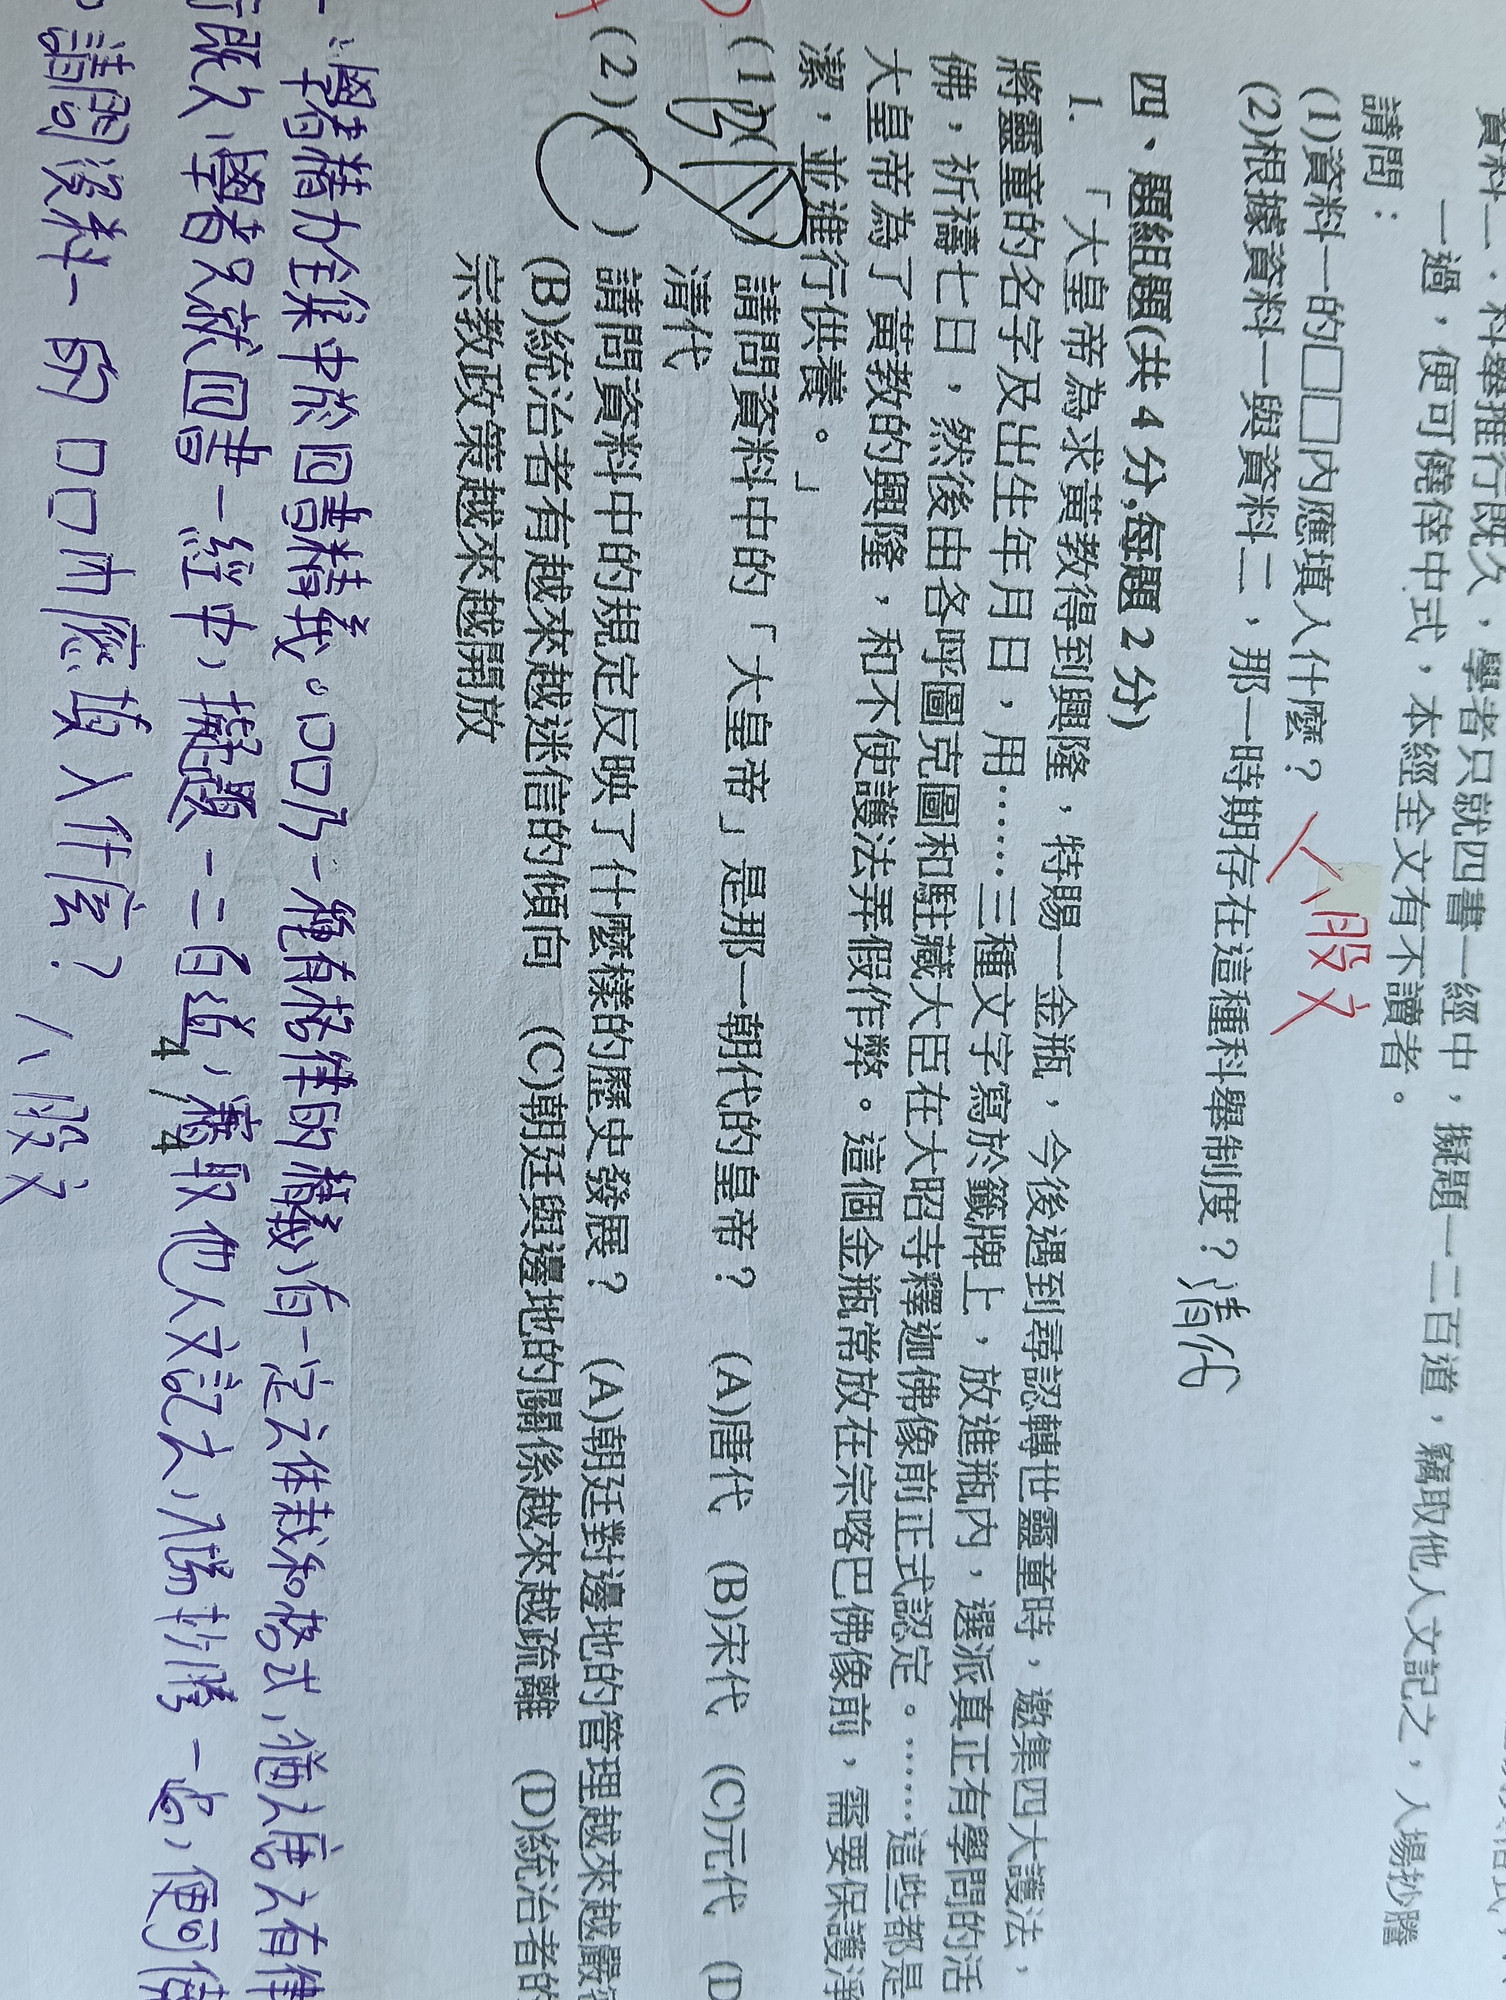 資料二：科舉推行既久，學者只就四書一經中，擬題一二百道，竊取他人文記之，入場抄謄
一過，便可僥倖中式，本經全文有不讀者。
請問：
(1)資料一的□□□內應填入什麼？ 八股文
(2)根據資料一與資料二，那一時期存在這種科舉制度？清代
四、題組題(共 4 分,每題 2 分)
1. 「大皇帝為求黃教得到興隆，特賜一金瓶，今後遇到尋認轉世靈童時，邀集四大護法，
將靈童的名字及出生年月日，用……三種文字寫於籤牌上，放進瓶內，選派真正有學問的活
佛，祈禱七日，然後由各呼圖克圖和駐藏大臣在大昭寺釋迦佛像前正式認定。……這些都是
大皇帝為了黃教的興隆，和不使護法弄假作弊。這個金瓶常放在宗喀巴佛像前，需要保護淨
潔，並進行供養。」
(1) ( ) 請問資料中的「大皇帝」是那一朝代的皇帝？ (A)唐代 (B)宋代 (C)元代 (D
清代
(2) ( C ) 請問資料中的規定反映了什麼樣的歷史發展？ (A)朝廷對邊地的管理越來越嚴
(B)統治者有越來越迷信的傾向 (C)朝廷與邊地的關係越來越疏離 (D)統治者的
宗教政策越來越開放
學者精力全集中於四書精義。□□乃一種有格律的精義，有一定之體裁和格式，猶之唐之有律
既久，學者只就四書一經中，擬題一二百道，竊取他人文記之，入場抄謄一過，便可僥
請問資料一的□□內應填入什麼？八股文
4/4